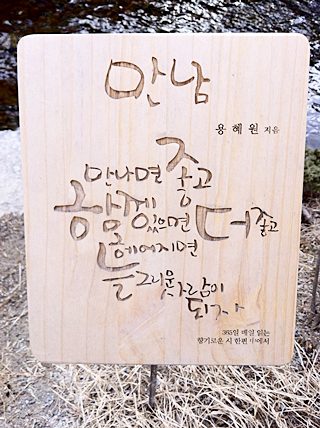 만남
용혜원 지음
만나면 좋고
함께 있으면 더 좋고
헤어지면
늘 그리운 사람이
되자
365일 매일 읽는
향기로운 시 한편 中에서